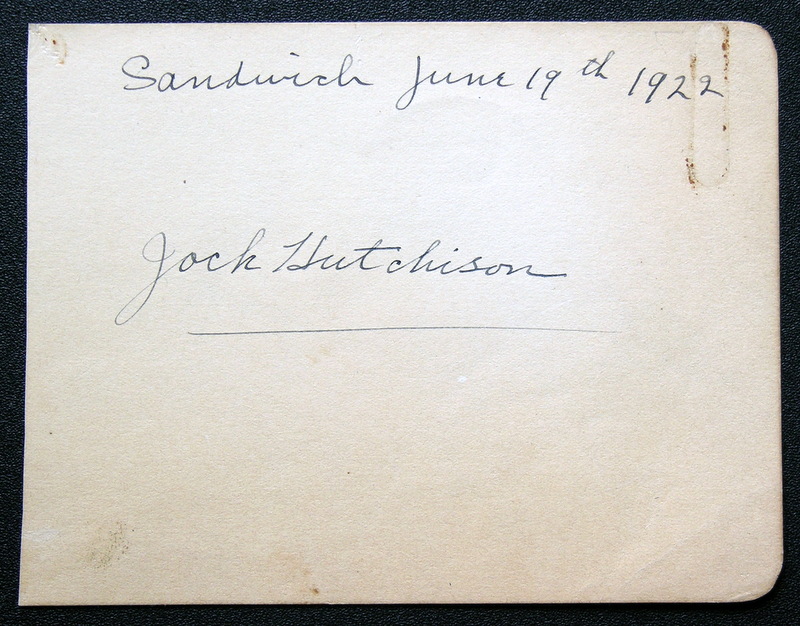 Sandwich June 19th 1922
Jock Hutchison